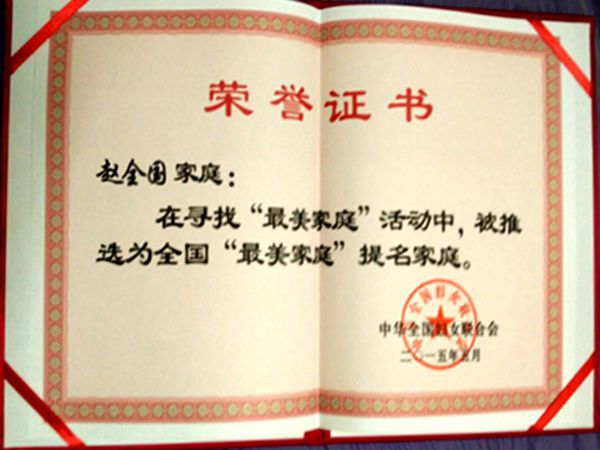 荣誉证书
赵全国家庭：
在寻找“最美家庭”活动中，被推
选为全国“最美家庭”提名家庭。
中华全国妇女联合会
二〇一五年五月